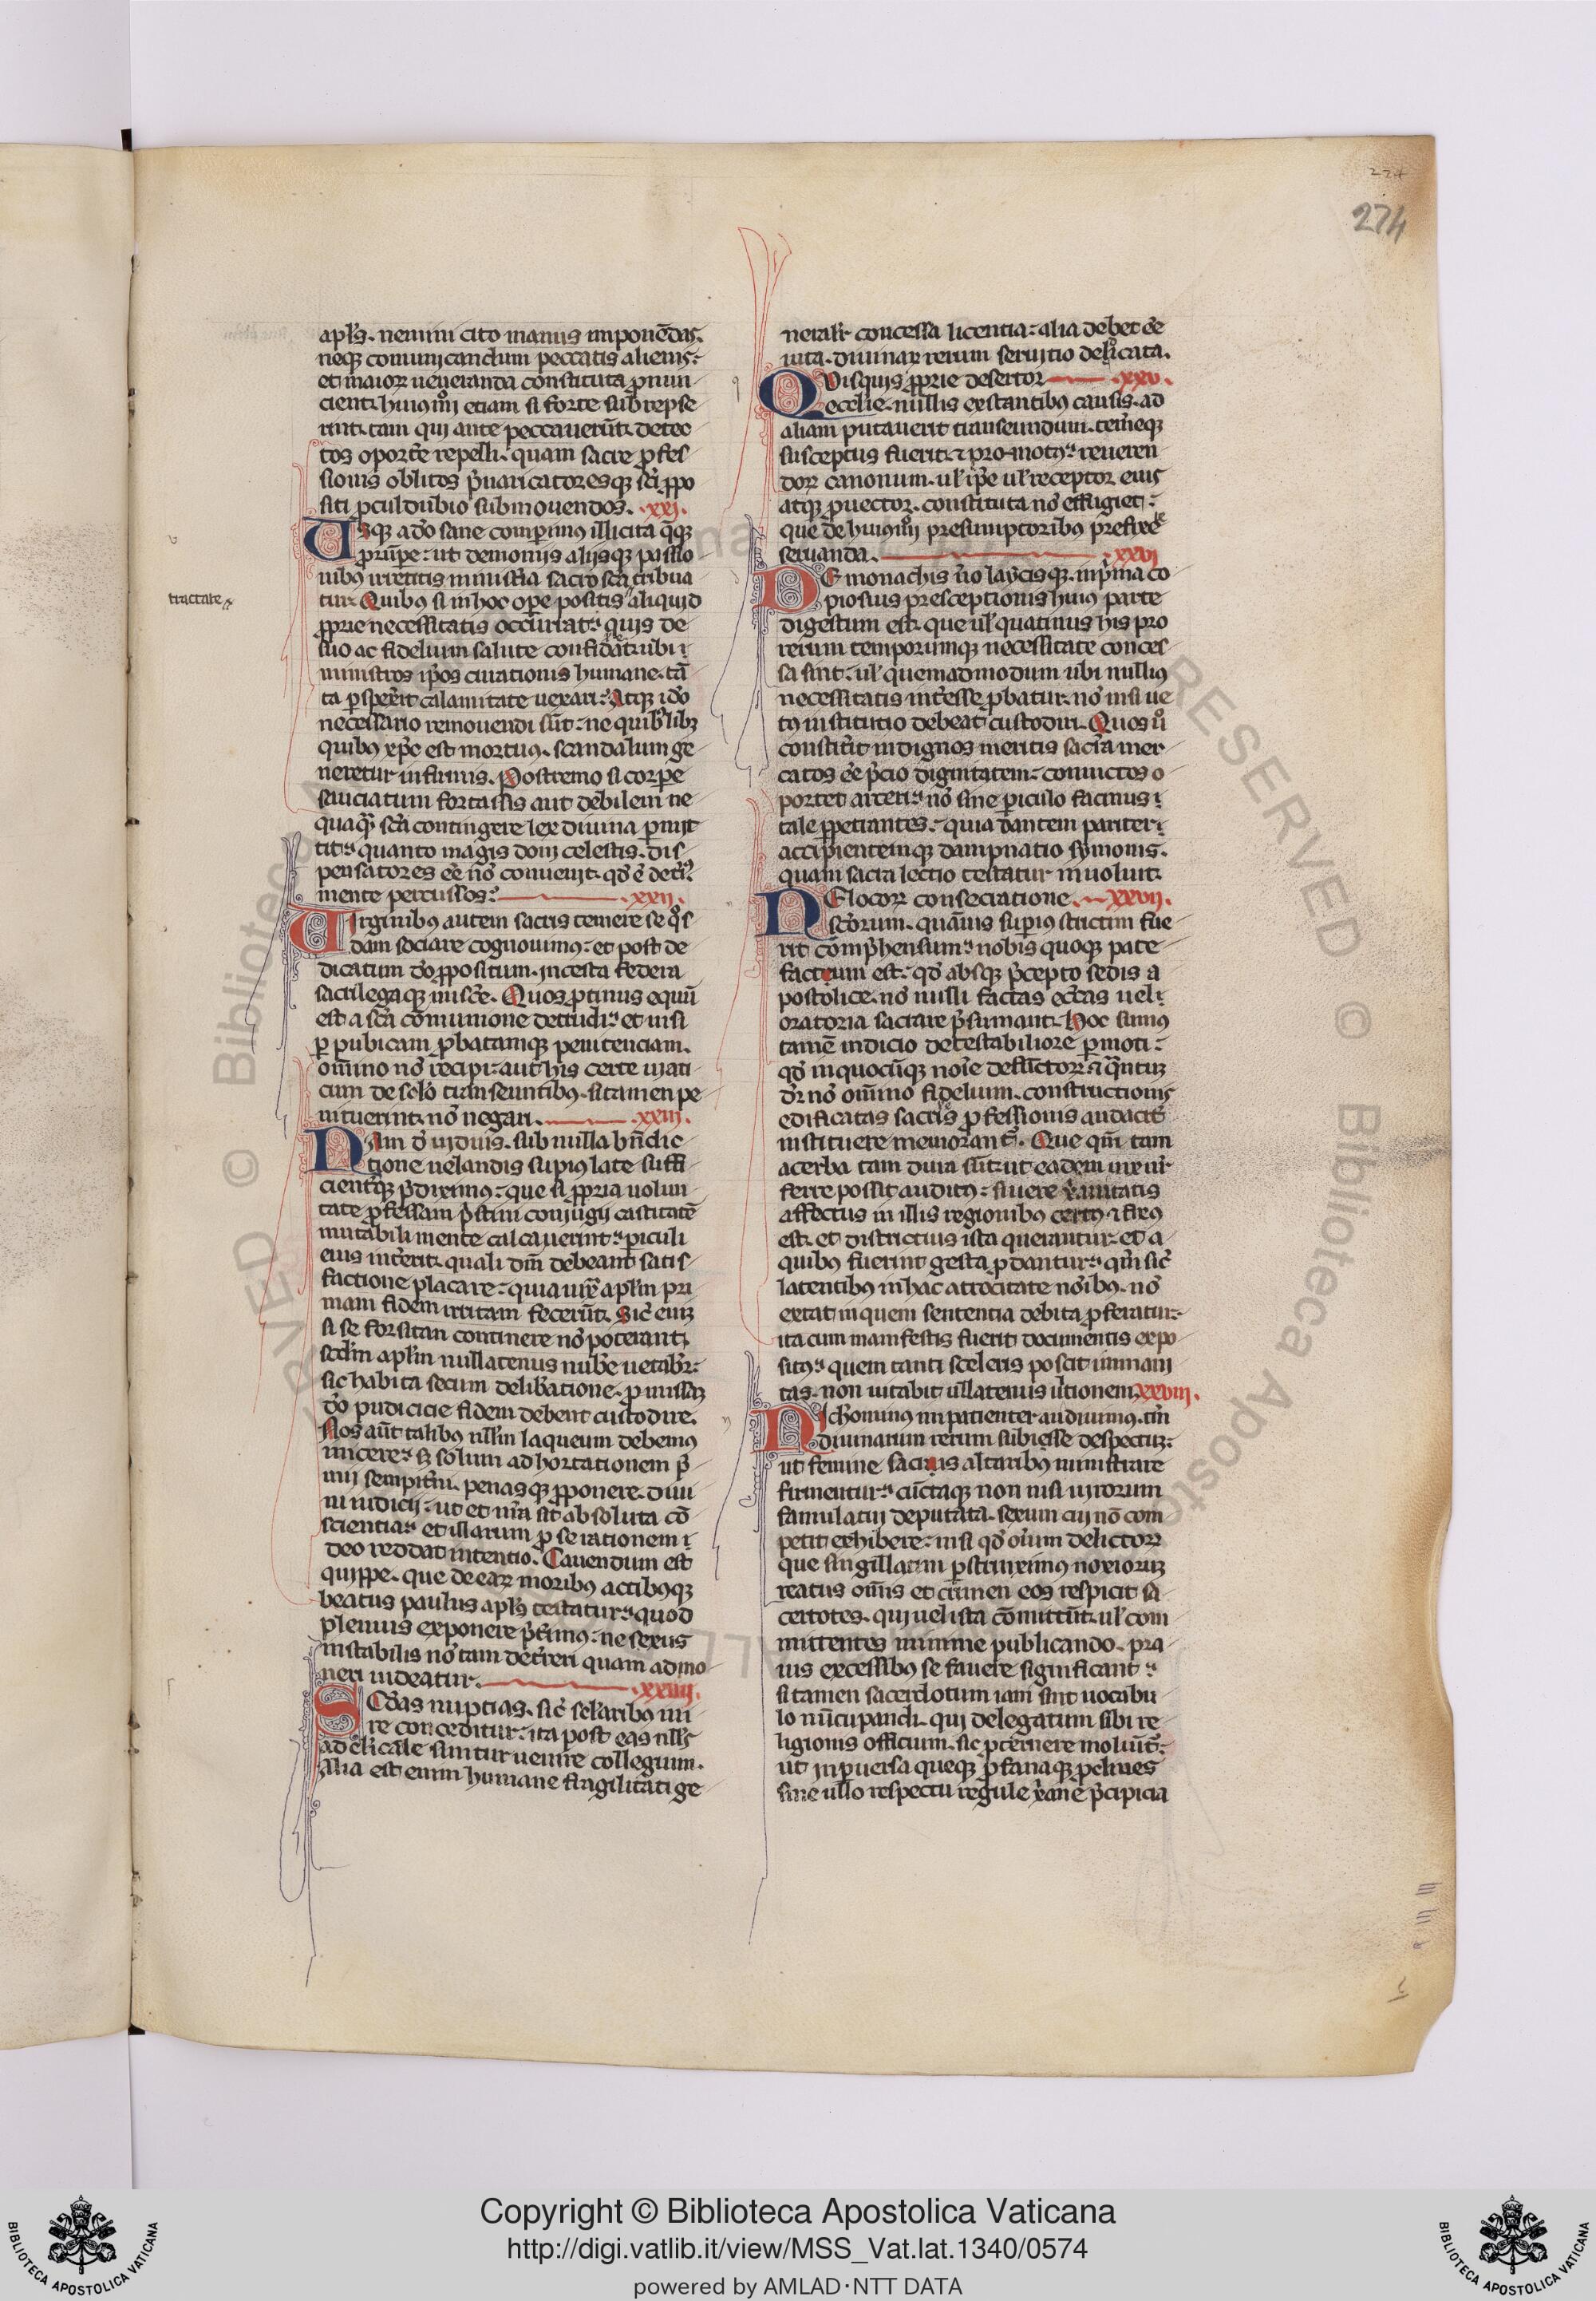 274
apl's. nemini cito manus imponēdas.
neq; comunicandum peccatis alienis:
et maior ueneranda constituta pronun
cient. huiusmōi etiam si forte subrepse
rint. tam qui ante peccauerūt detec
tos oportē repelli. quam sacre profes
sionis oblitos p̄uaricatoresq; sc̄i p̄po
siti proculdubio submouendos. .xxi.
Usq; adō sane comperimus illicita q̄q;
prūpe: ut demoniis aliisq; passio
nibus irretitis ministeria sacrosc̄a tribua
tur. Quibus si in hoc ope positis aliquid
proprie necessitatis occurrat: quis de
suo ac fidelium salute confidat. ubi
ministros ip̄os curationis humane. tā
ta perspexerit calamitate uexari: Atq; idō
necessario remouendi sūt: ne quibuslibz
quibus xp̄c est mortuus. scandalum ge
neretur infirmis. Postremo si corpe
sauciatum fortassis aut debilem ne
quaq̄ sc̄a contingere lex diuina p̄mit
tit: quanto magis doni celestis. dis
pensatores eē nō conuenit. qd̄ ē deter.
mente percussos: .xxii.
tractare
Uirginibus autem sacris temere se q̄s
dam sociare cognouimus: et post de
dicatum dō propositum. incesta federa
sacrilegaq; miscē. Quos protinus equū
est a sc̄a cōmunione detrudi: et nisi
per pubicam probatamq; penitenciam.
om̄ino nō recipi. aut his certe uiati
cum de sclō transeuntibus. si tamen pe
nituerint. nō negari. .xxiii.
Nam d̄ uiduis. sub nulla bn̄dic
tione uelandis supius late suffi
cienterq; p̄diximus: que si propria uolun
tate professam pristini coniugii castitatē
mutabili mente calcauerint: periculi
eius intererit. quali dm̄ debeant satis
factione placare: quia iux apl'm pri
mam fidem irritam fecerūt. Sic enim
si se forsitan continere nō poterant.
scd'm apl'm nullatenus nubē uetabr̄:
sic habita secum deliberatione. promissāz
dō pudicicie fidem debent custodire.
Nos aūt talibus nll'm laqueum debemus
inicere: s; solum adhortationem p̄
mii sempiterni. penasq; proponere. diui
ni iudicii: ut et nr̄a sit absoluta cō
scientia: et illarum pro se rationem
deo reddat intentio. Cauendum est
quippe. que de earz moribus actibusq;
beatus paulus apl's testatur: quod
plenius exponere p̄terimus: ne sexus
instabilis nō tam deterreri quam admo
neri uideatur. .xxiiii.
Scd̄as nuptias. sic sclaribus ini
re conceditur: ita post eas nll's
ad clericale sinitur uenire collegium.
Alia est enim humane fragilitati ge
neralr̄ concessa licentia: alia debet eē
uita. diuinarz rerum seruitio dedicata.
Quisquis proprie desertor .xxv.
ecclie. nullis exstantibus causis. ad
aliam putauerit transeundum. temeq;
susceptus fuerit. et promotus: reueren
dorz canonum. ul' ip̄e ul' receptor eius
atq; prouector. constituta nō effugiet:
que de huiusmōi presumptoribus prefixere
seruanda. .xxvi
De monachis u̅o laycisq;. in p̄ma co
piosius presceptionis huius parte
digestum est. que ul' quatinus his pro
rerum temporumq; necessitate conces
sa sint: ul' quemadmodum ubi nullius
necessitatis int̄esse probatur. nō nisi ue
tus institutio debeat custodiri. Quos u̅o
constiterit indignos meritis sacram mer
catos eē p̄cio dignitatem: conuictos o
portet arceri: nō sine periculo facinus
tale perpetrantes: quia dantem pariter
accipientemq; dampnatio symonis.
quam sacra lectio testatur inuoluit.
De locorz consecratione .xxvii.
sc̄orum. quāuis supius strictim fue
rit comp̄hensum: nobis quoq; pate
factum est: qd̄ absq; p̄cepto sedis a
postolice. nō nulli factas ec̄cas uel
oratoria sacrare p̄sumant. Hoc sumus
tamē indicio detestabiliore permoti:
qd̄ in quocūq; noīe defūctorz et q̄ntuz
dr̄ nō om̄ino fidelium. constructionis
edificatas sacris professionis audacter
instituere memorant. Que qm̄ tam
acerba tam dura sūt. ut eadem uix nr̄
ferre possit auditus: si uere xp̄ianitatis
affectus in illis regionibus certus et fixus
est. et districtius ista querantur: et a
quibus fuerint gesta prodantur: qm̄ sic
latentibus in hac atrocitate noībus. nō
extat in quem sententia debita proferatur:
ita cum manifestis fuerit documentis expo
situs: quem tanti sceleris poscit inmani
tas. non uitabit ullatenus ultionem. xxviii.
Nichominus inpatienter audiuimus. tm̄
diuinarum rerum subiesse despectuz:
ut femine sacris altaribus ministrare
firmentur: cūctaq; non nisi uirorum
famulatui deputata. sexum cui nō com
petit exhibere: nisi qd̄ oīum delictorz
que singillatim perstrinximus noxiorum
reatus om̄is et crimen eos respicit sa
certotes. qui uel ista cōmittūt. ul' com
mittentes minime publicando. pra
uis excessibus se fauere significant:
si tamen sacerdotum iam sint uocabu
lo nūcupandi. qui delegatum sibi re
ligionis officium. sic p̄ternere moliūt:
ut in peruersa queq; profanaq; procliues
sine ullo respectu regule xp̄iane p̄cipicia
Copyright © Biblioteca Apostolica Vaticana
http://digi.vatlib.it/view/MSS_Vat.lat.1340/0574
powered by AMLAD·NTT DATA
BIBLIOTECA APOSTOLICA VATICANA
BIBLIOTECA APOSTOLICA VATICANA